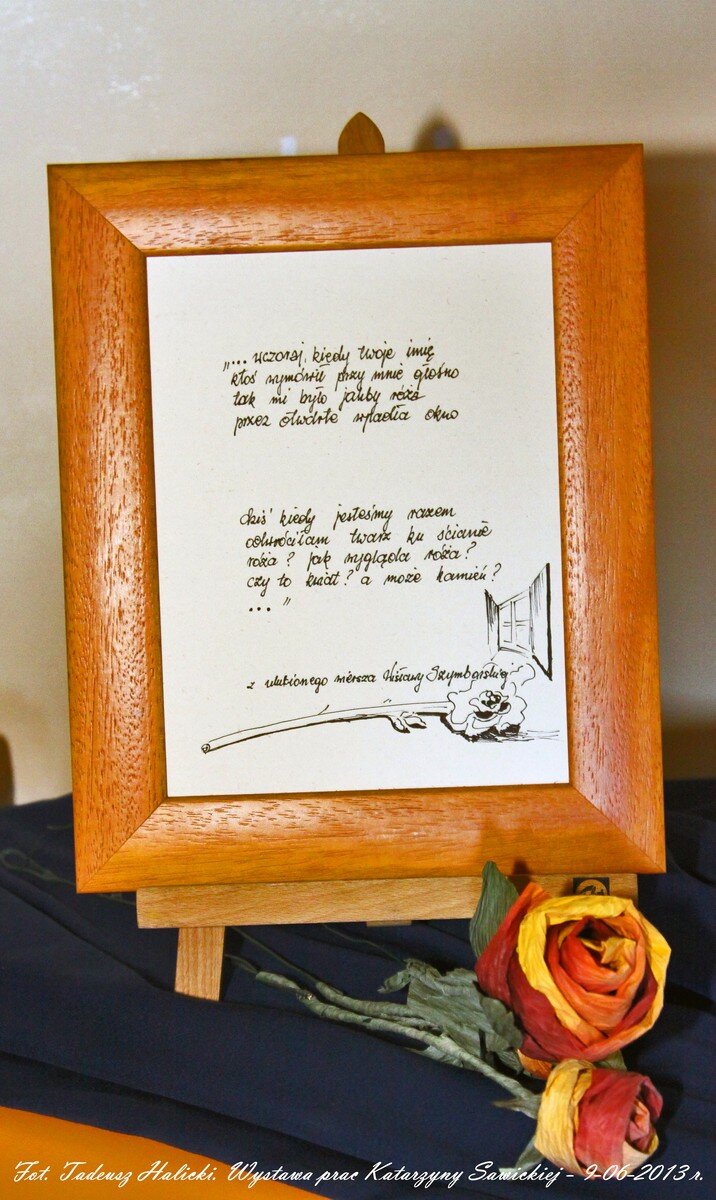 „... wczoraj, kiedy twoje imię
ktoś wymówił przy mnie głośno
tak mi było jakby róża
przez otwarte wpadła okno
dziś kiedy jesteśmy razem
odwróciłam twarz ku ścianie
róża? jak wygląda róża?
czy to kwiat? a może kamień?
... ”
z ulubionego wiersza Wisławy Szymborskiej
Fot. Tadeusz Halicki. Wystawa prac Katarzyny Sawickiej - 9-06-2013 r.